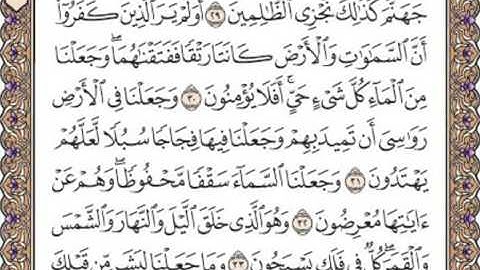 جَهَنَّمَ كَذَٰلِكَ نَجْزِي ٱلظَّٰلِمِينَ ٢٩ أَوَلَمْ يَرَ ٱلَّذِينَ كَفَرُوٓا۟
أَنَّ ٱلسَّمَٰوَٰتِ وَٱلْأَرْضَ كَانَتَا رَتْقًا فَفَتَقْنَٰهُمَا ۖ وَجَعَلْنَا
مِنَ ٱلْمَآءِ كُلَّ شَىْءٍ حَىٍّ ۖ أَفَلَا يُؤْمِنُونَ ٣٠ وَجَعَلْنَا فِى ٱلْأَرْضِ
رَوَٰسِىَ أَن تَمِيدَ بِهِمْ وَجَعَلْنَا فِيهَا فِجَاجًا سُبُلًا لَّعَلَّهُمْ
يَهْتَدُونَ ٣١ وَجَعَلْنَا ٱلسَّمَآءَ سَقْفًا مَّحْفُوظًا ۖ وَهُمْ عَنْ
ءَايَٰتِهَا مُعْرِضُونَ ٣٢ وَهُوَ ٱلَّذِى خَلَقَ ٱلَّيْلَ وَٱلنَّهَارَ وَٱلشَّمْسَ
وَٱلْقَمَرَ ۖ كُلٌّ فِى فَلَكٍ يَسْبَحُونَ ٣٣ وَمَا جَعَلْنَا لِبَشَرٍ مِّن قَبْلِكَ